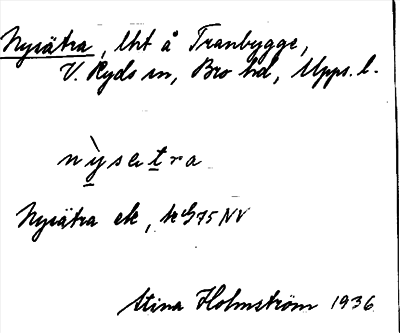 Nysätra, lht å Tranbygge,
V. Ryds sn, Bro hd, Upps. l.
nỳsetra
Nysätra ek, NV
Stina Holmström 1936